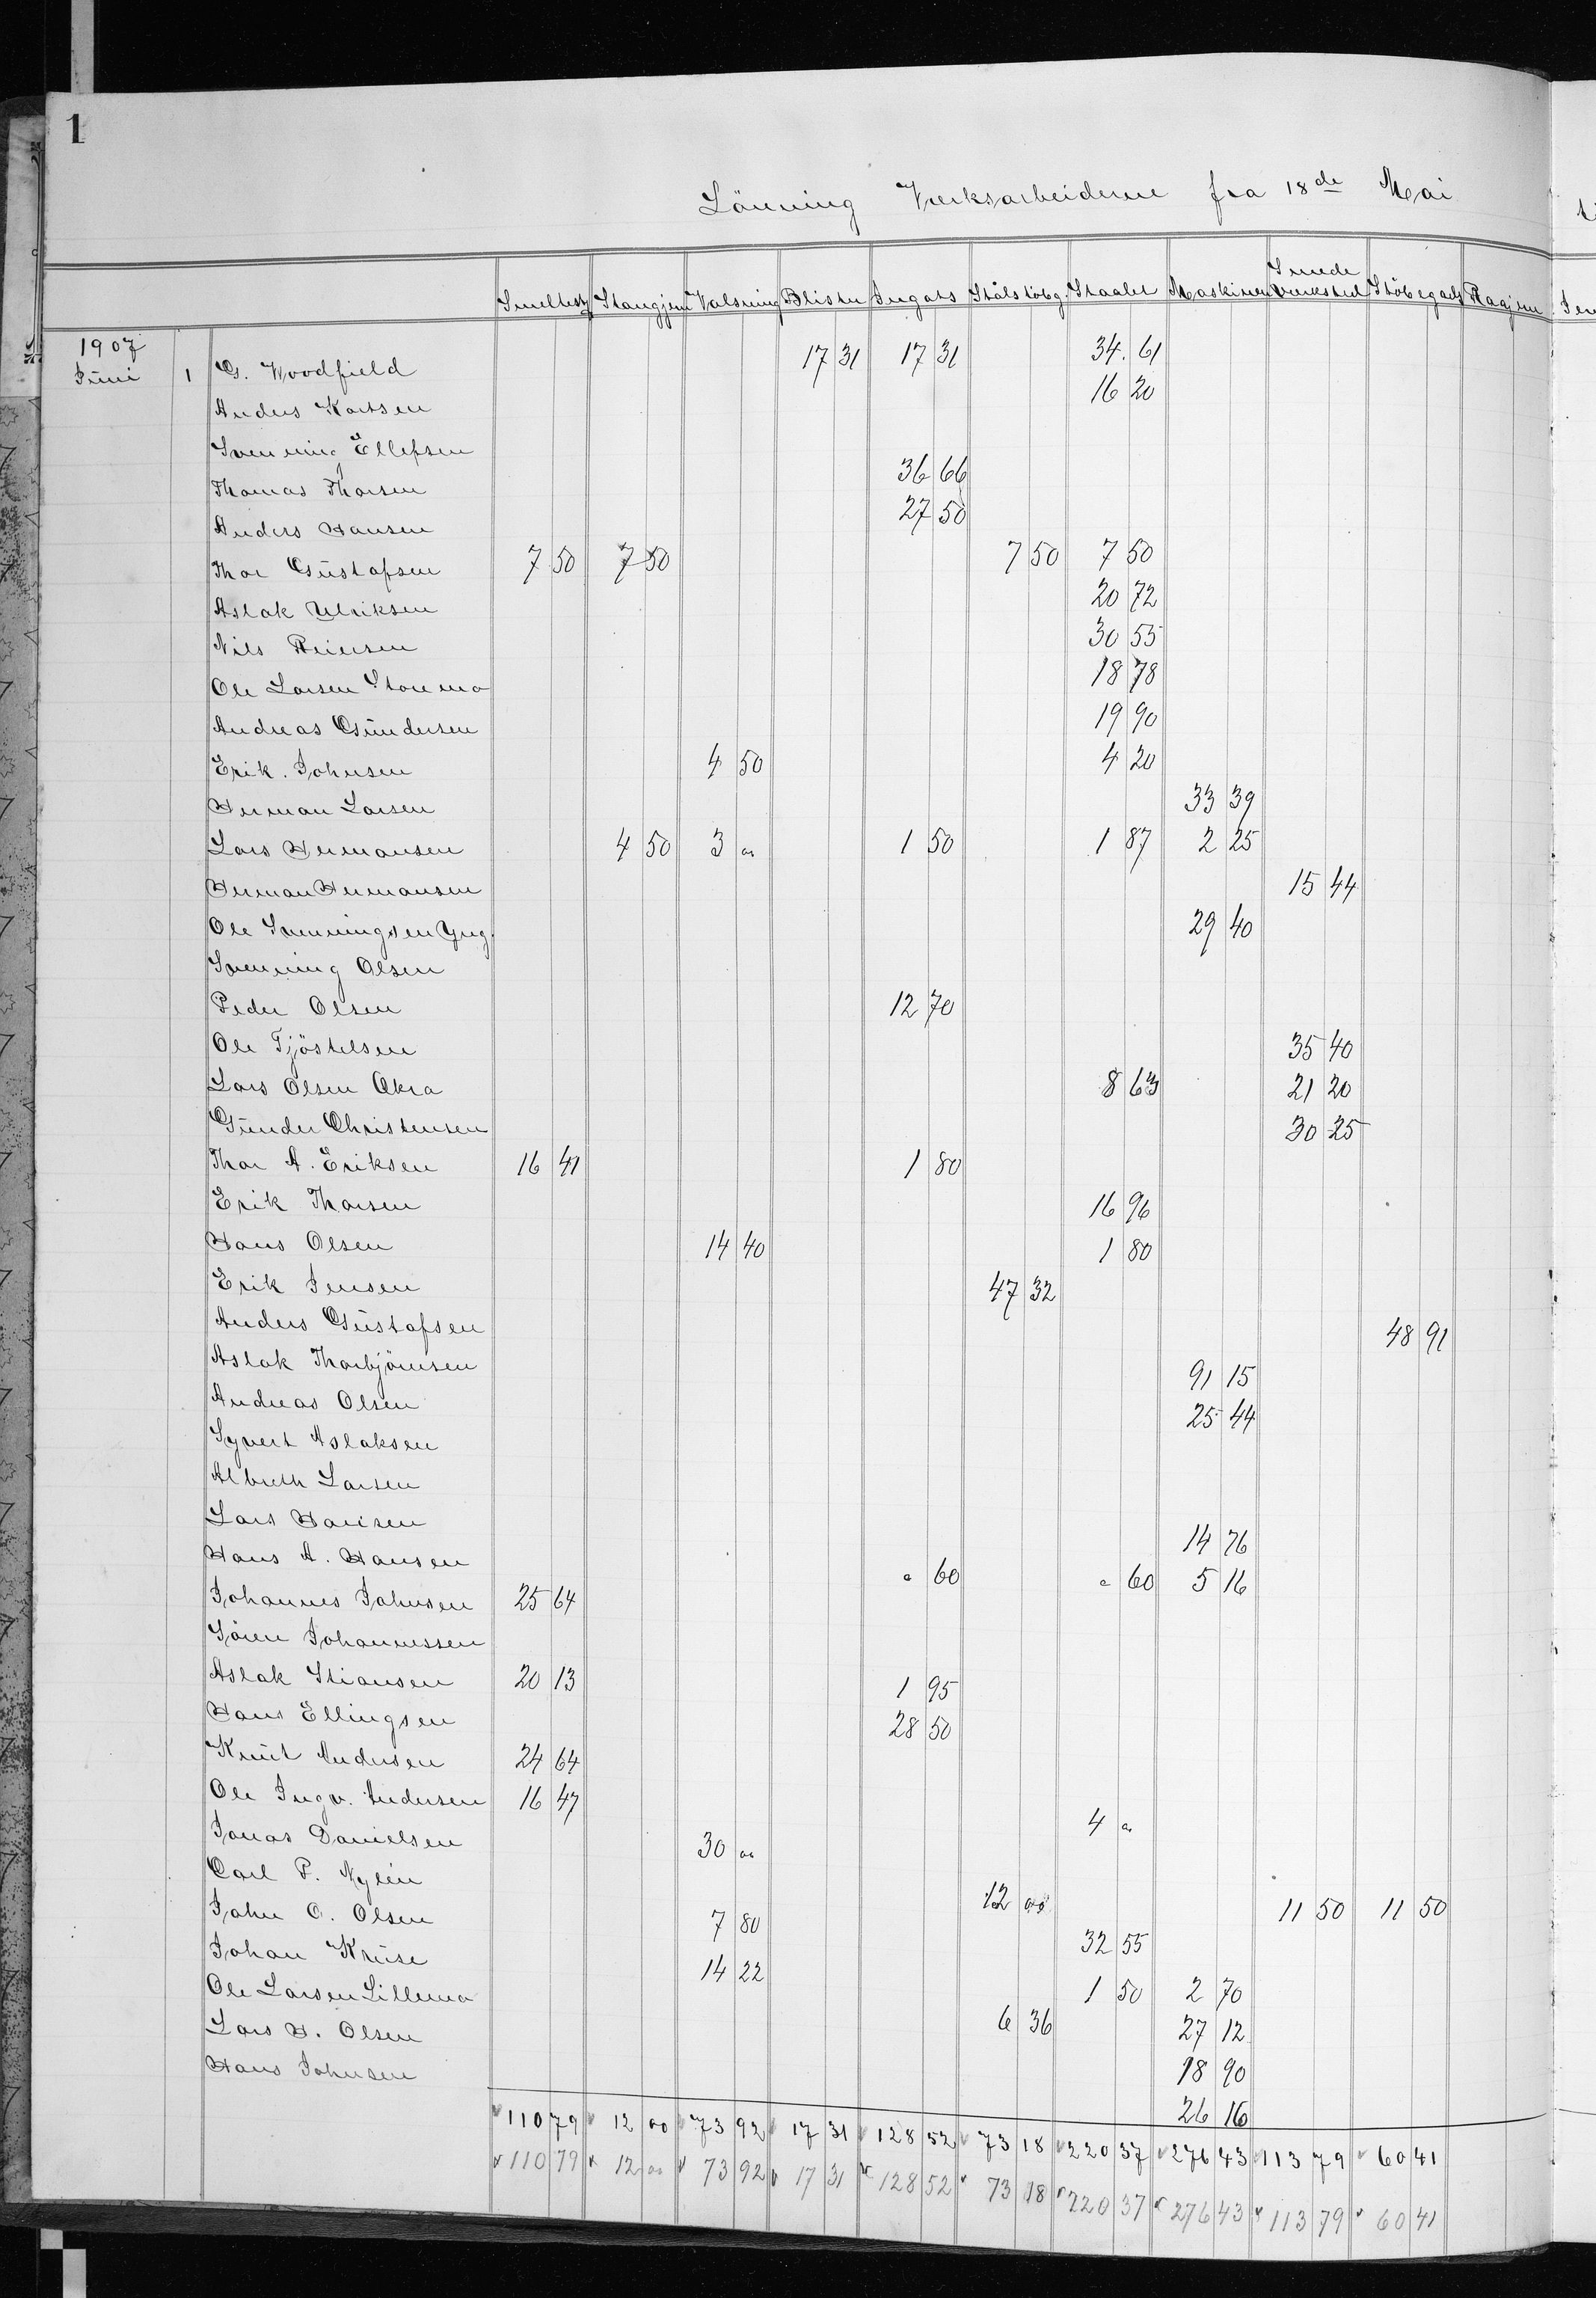 1
Lönning Værksarbeiderne fra 18de Mai
Smeltestg Stangjern Valsning Blister Ingots Stålstöbg. Staalet Maskinen Smede Værksted Stöbegods Raajern
1907
Juni 1 G. Woodfield 17 31 17 31 34. 61
Anders Kortsen 16 20
Svenning Ellefsen
Thomas Thorsen 36 66
Anders Hansen 27 50
Thor Gustafsen 7 50 7 50 7 50 7 50
Aslak Ulriksen 20 72
Nils Reiersen 30 55
Ole Larsen Stormo 18 78
Andreas Gundersen 19 90
Erik. Johnsen 4 50 4 20
Herman Larsen 33 39
Lars Hermansen 4 50 3 00 1 50 1 87 2 25
Herman Hermansen 15 44
Ole Svenningsen Yng. 29 40
Svenning Olsen
Peder Olsen 12 70
Ole Tjöstelsen 35 40
Lars Olsen Okra 8 63 21 20
Gunder Christensen 30 25
Thor A. Eriksen 16 41 1 80
Erik Thorsen 16 96
Hans Olsen 14 40 1 80
Erik Jensen 47 32
Anders Gustafsen 48 91
Aslak Thorbjörnsen 91 15
Andreas Olsen 25 44
Syvert Aslaksen
Albreth Larsen
Lars Hansen 14 76
Hans A. Hansen " 60 " 60 5 16
Johannes Johnsen 25 64
Sören Johannessen
Aslak Stiansen 20 13 1 95
Hans Ellingsen 28 50
Knut Andersen 24 64
Ole Ingv. Andersen 16 47
Jonas Danielsen 30 00 4 "
Carl P. Nylén
John O. Olsen 7 80 12 00 11 50 11 50
Johan Kruse 14 22 32 55
Ole Larsen Lillemo 1 50 2 70
Lars H. Olsen 6 36 27 12
Hans Johnsen 18 90
26 16
110 79 12 00 73 92 17 31 128 52 73 18 220 37 276 43 113 79 60 41
110 79 12 00 73 92 17 31 128 52 73 18 220 37 276 43 113 79 60 41